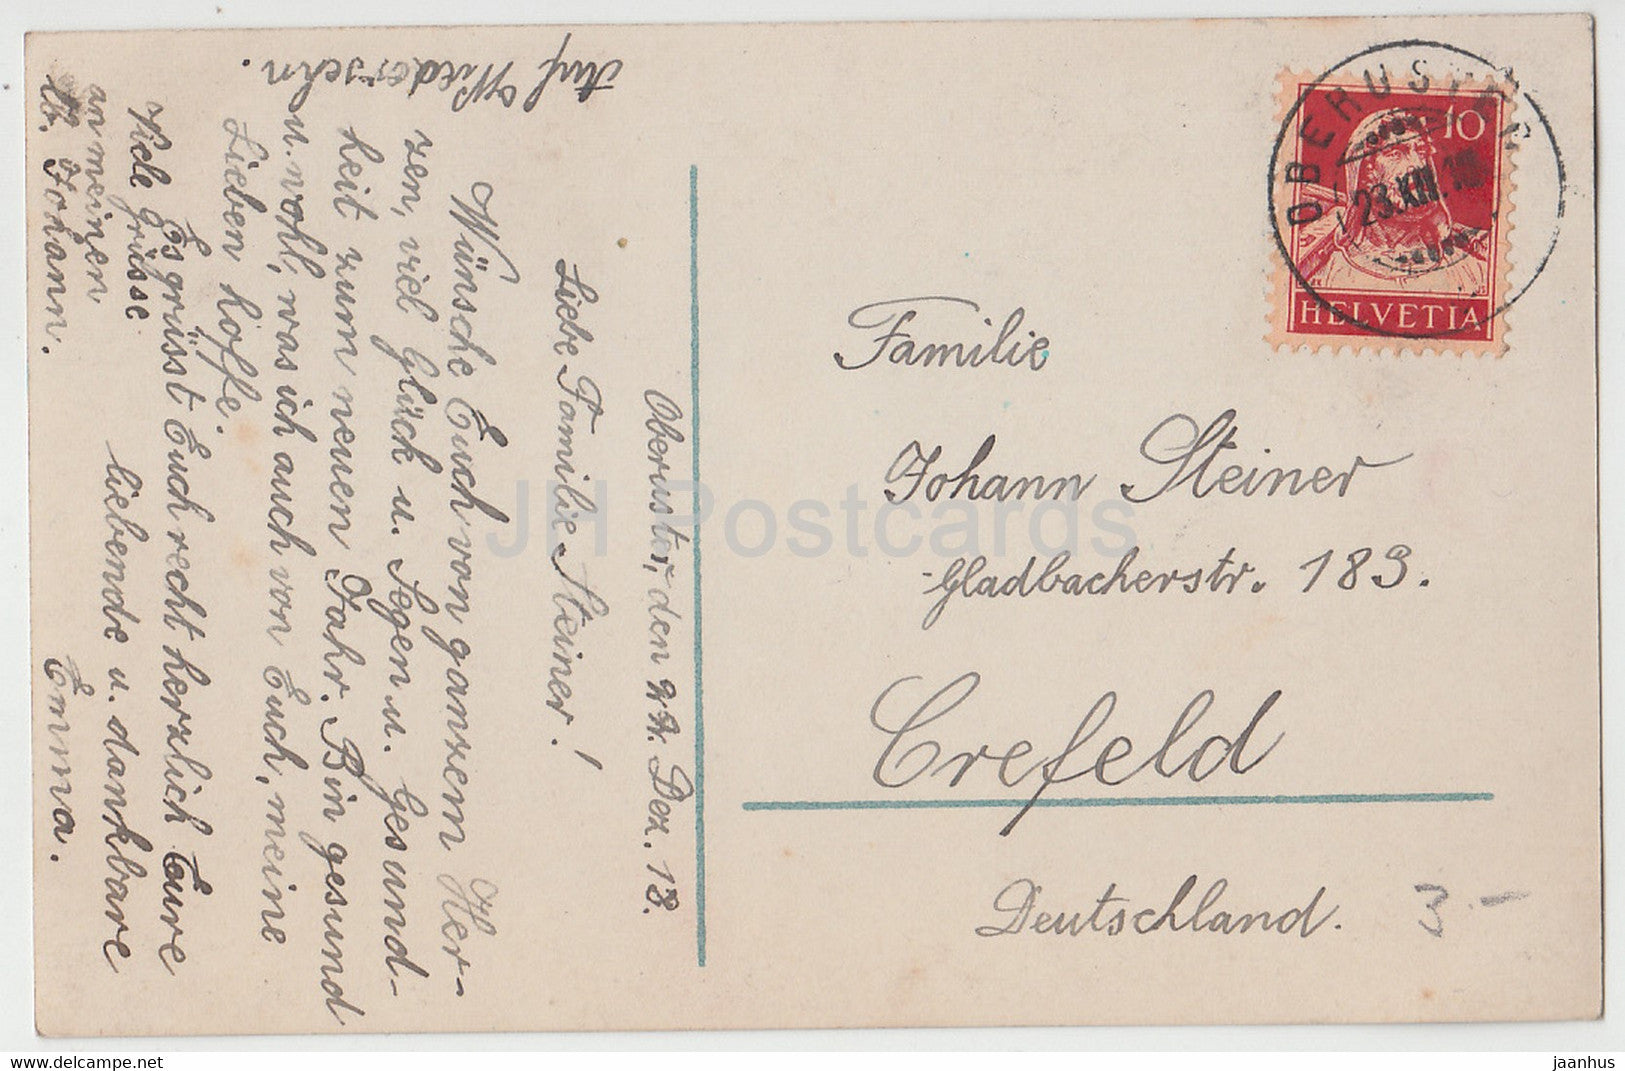 Oberuster, den 22. Dez. 18.
Liebe Familie Steiner!
Wünsche Euch von ganzem Her-
zen, viel Glück u. Segen u. Gesund-
heit zum neuen Jahr. Bin gesund
u. wohl, was ich auch von Euch, meine
Lieben hoffe.
Es grüsst Euch recht herzlich Eure
liebende u. dankbare
Emma.
Viele Grüsse
an meinen
lb. Johann.
Auf Wiedersehn.
OBERUSTER
23.XII.18
10
HELVETIA
Familie
Johann Steiner
Gladbacherstr. 183.
Crefeld
Deutschland.
3.-
JH Postcards
https://www.delcampe.net
jaanhus